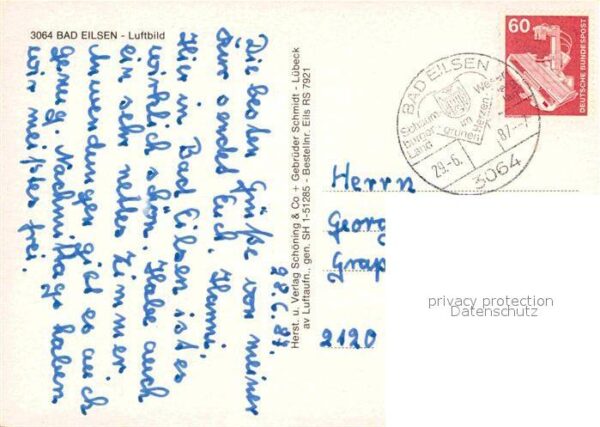 3064 BAD EILSEN - Luftbild
Die besten Grüße von meiner
Kur sendet Euch Hanni.
28.6.87.
Hier in Bad Eilsen ist es
wirklich schön. Habe auch
ein sehr nettes Zimmer
Anwendungen gibt es auch
genug. Nachmittags haben
wir meistes frei.
Herst. u. Verlag Schöning & Co + Gebrüder Schmidt - Lübeck
av Luftaufn., gen. SH 1-51285 - Bestellnr. Eils RS 7921
BAD EILSEN
Schaum-
burger
Land
im
grünen
Herzen
29.-6.
87.-
3064
60
DEUTSCHE BUNDESPOST
Herrn
Georg
Grap
2120
privacy protection
Datenschutz